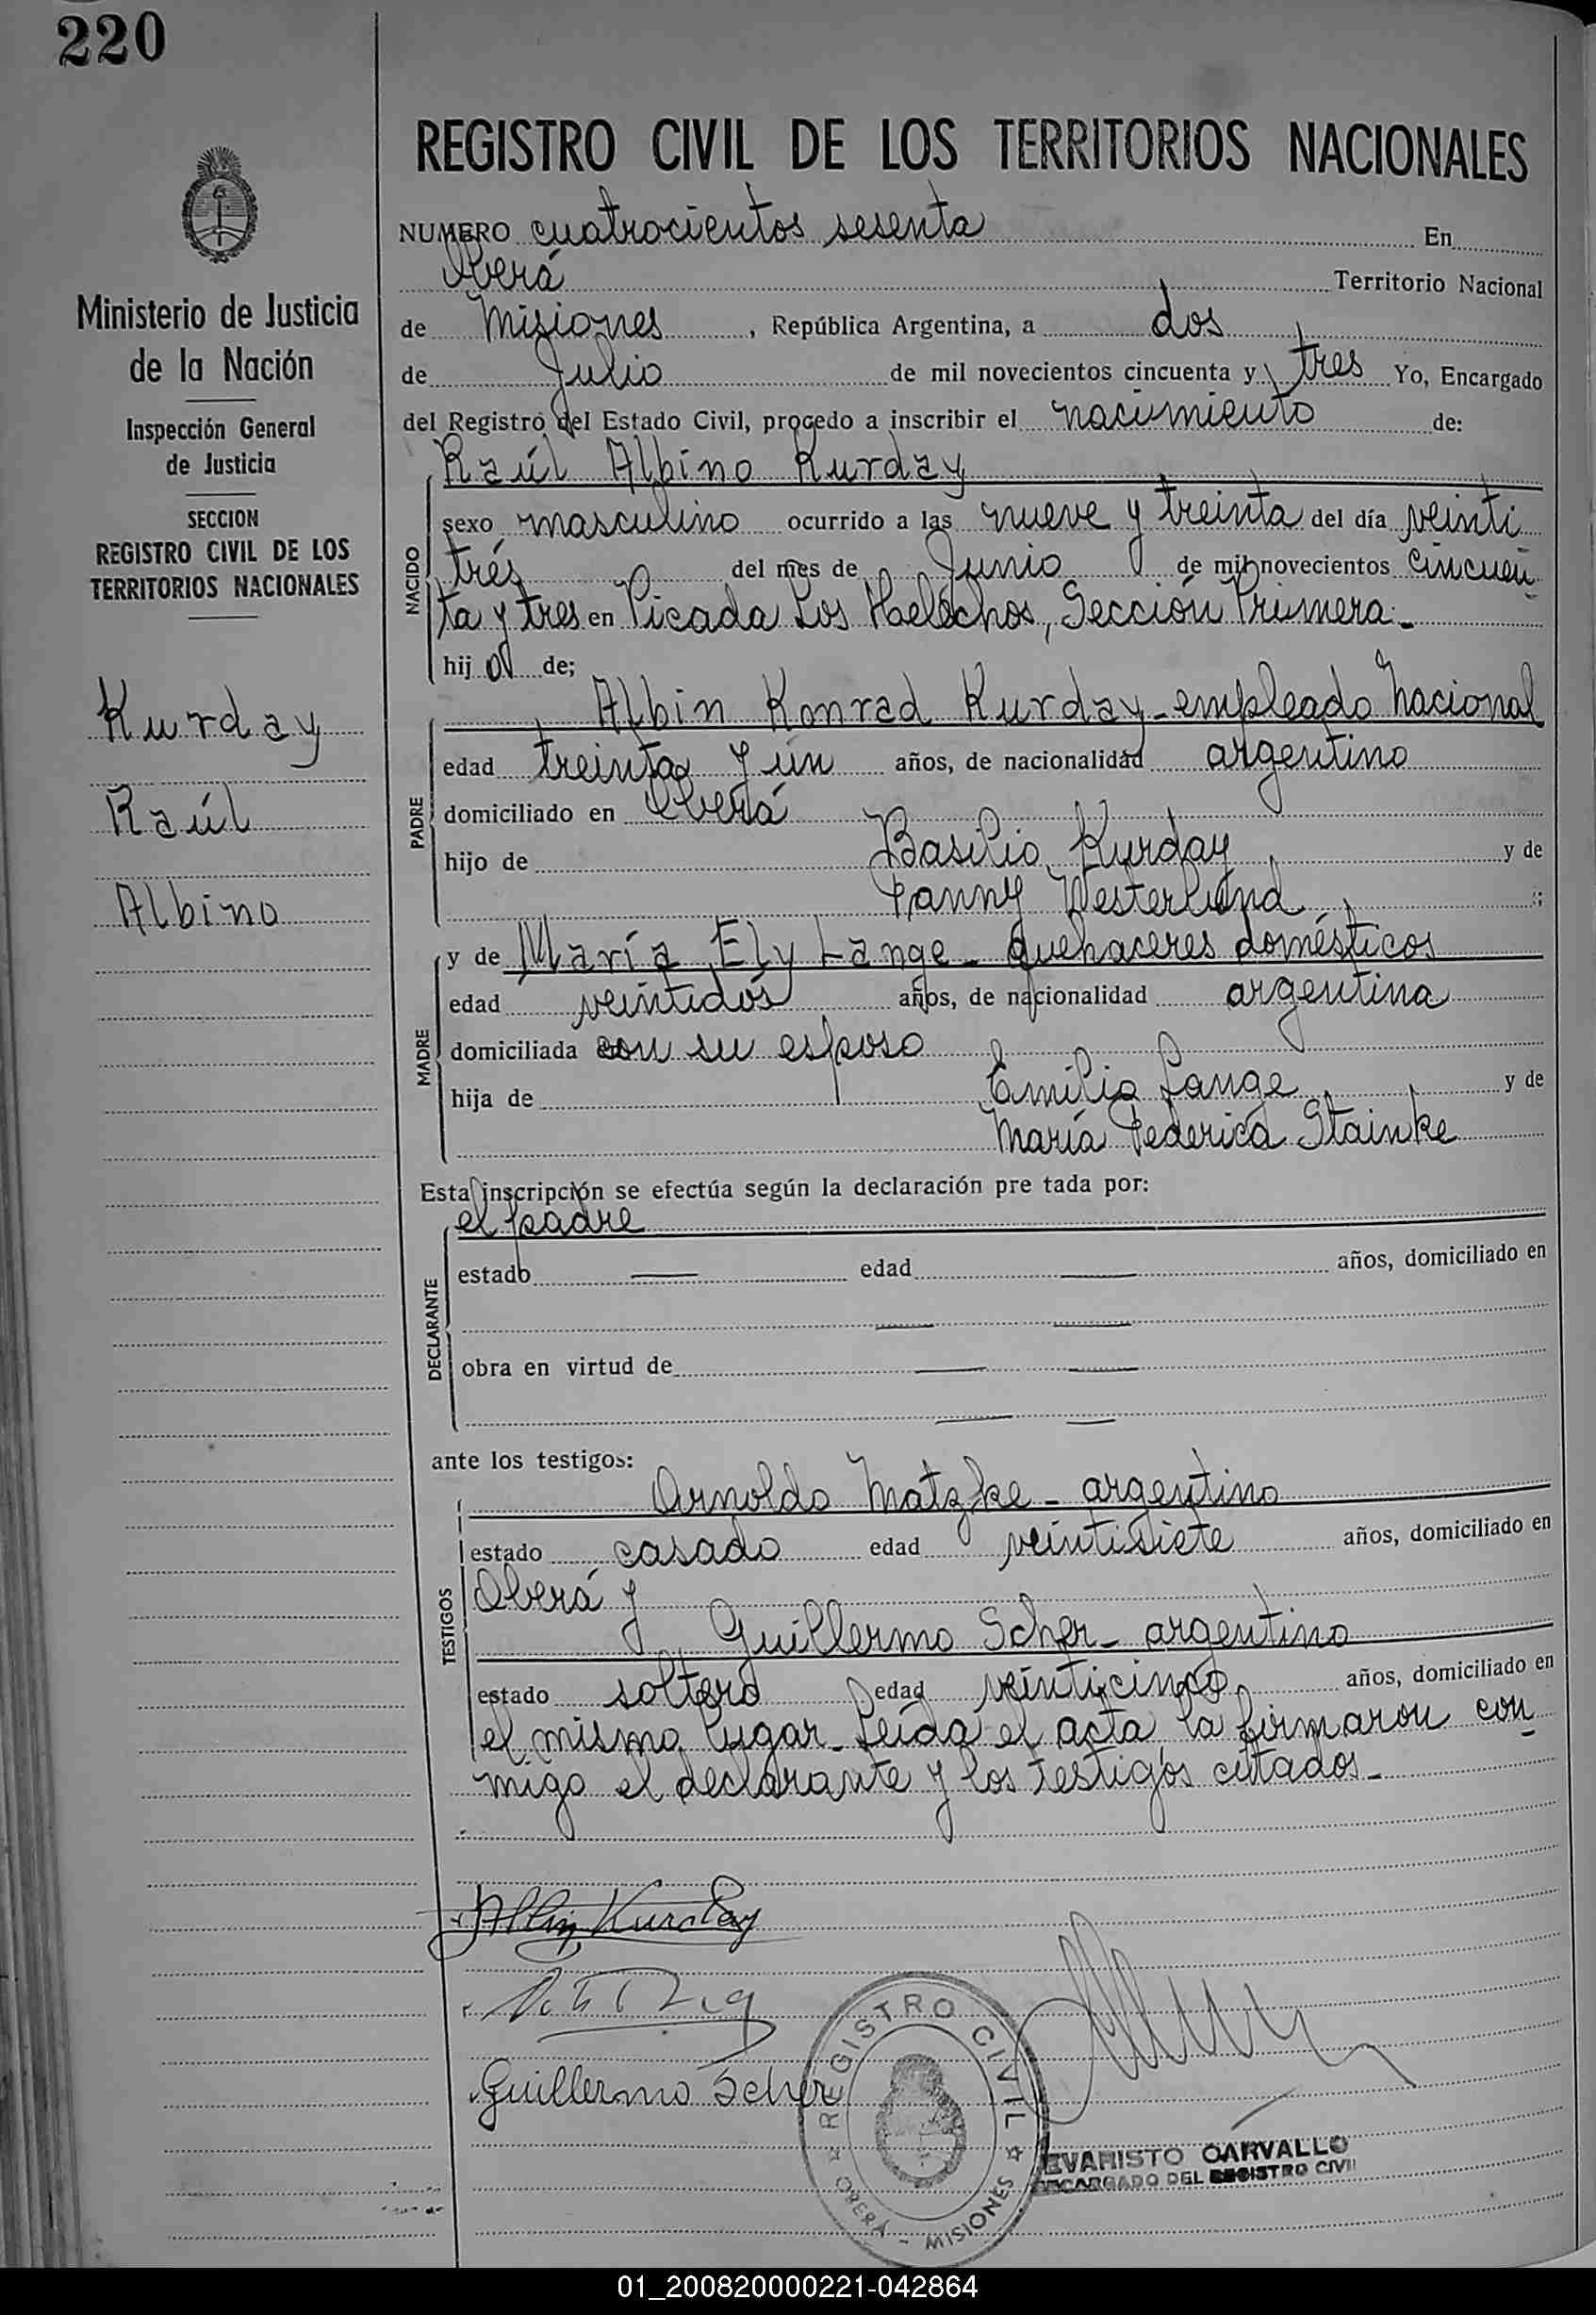 220
REGISTRO CIVIL DE LOS TERRITORIOS NACIONALES
Ministerio de Justicia
de la Nación
Inspección General
de Justicia
SECCION
REGISTRO CIVIL DE LOS
TERRITORIOS NACIONALES
Kurday
Raúl
Albino
NUMERO cuatrocientos sesenta En
Oberá Territorio Nacional
de Misiones, República Argentina, a dos
de Julio de mil novecientos cincuenta y tres Yo, Encargado
del Registro del Estado Civil, procedo a inscribir el nacimiento de:
Raúl Albino Kurday
NACIDO
sexo masculino ocurrido a las nueve y treinta del día veinti
trés del mes de Junio de mil novecientos cincuen
ta y tres en Picada Los Helechos, Sección Primera.-
hijo de;
Albin Konrad Kurday - empleado Nacional
PADRE
edad treinta y un años, de nacionalidad argentino
domiciliado en Oberá
hijo de Basilio Kurday y de
Fanny Westerlund ;
y de María Ely Lange - quehaceres domésticos
MADRE
edad veintidós años, de nacionalidad argentina
domiciliada con su esposo
hija de Emilio Lange y de
María Federica Stainke
Esta inscripción se efectúa según la declaración pre tada por:
el padre
DECLARANTE
estado — edad — años, domiciliado en
— —
obra en virtud de — —
— —
ante los testigos:
Arnoldo Matzke - argentino
TESTIGOS
estado casado edad veintisiete años, domiciliado en
Oberá y
Guillermo Scher - argentino
estado soltero edad veinticinco años, domiciliado en
el mismo lugar - Leída el acta la firmaron con
migo el declarante y los testigos citados.-
Albin Kurday
Guillermo Scher
REGISTRO CIVIL
OBERA - MISIONES
EVARISTO CARVALLO
ENCARGADO DEL REGISTRO CIVIL
01_200820000221-042864